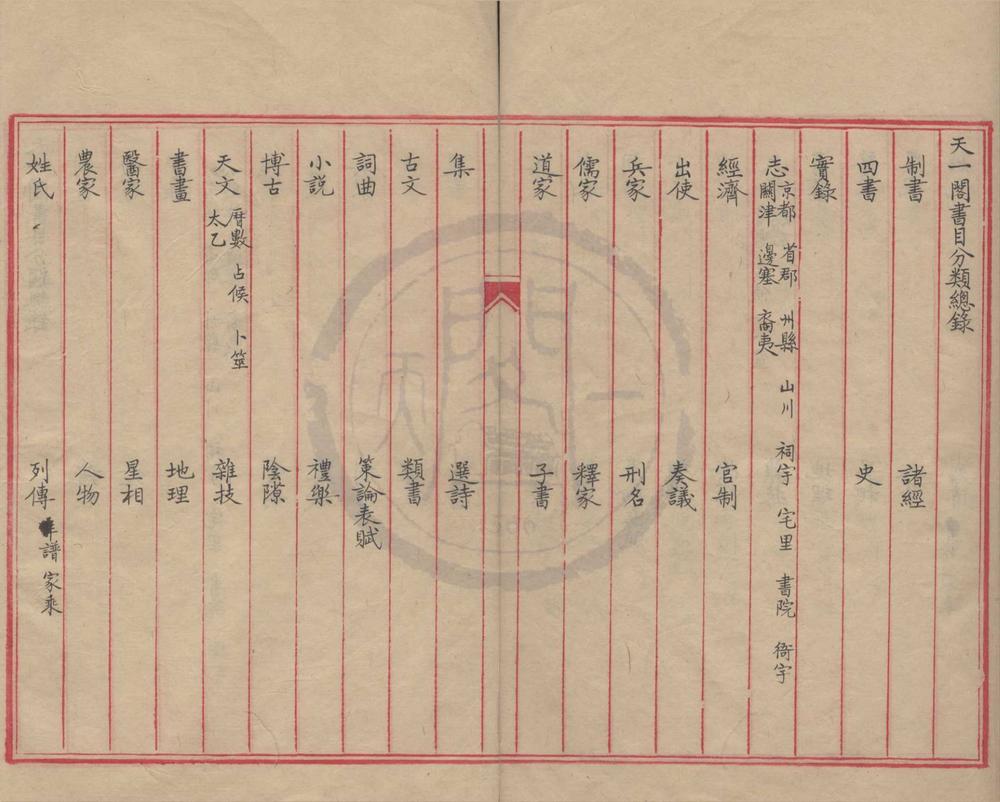 天一閣書目分類總錄
制書 諸經
四書 史
實錄
志 京都 省郡 州縣 山川 祠宇 宅里 書院 衙宇 關津 邊塞 裔夷
經濟 官制
出使 奏議
兵家 刑名
儒家 釋家
道家 子書
集 選詩
古文 類書
詞曲 策論表賦
小説 禮樂
博古 陰隲
天文 厝數 占候 卜筮 太乙 雜技
書畫 地理
醫家 星相
農家 人物
姓氏 列傳 年譜 家乘